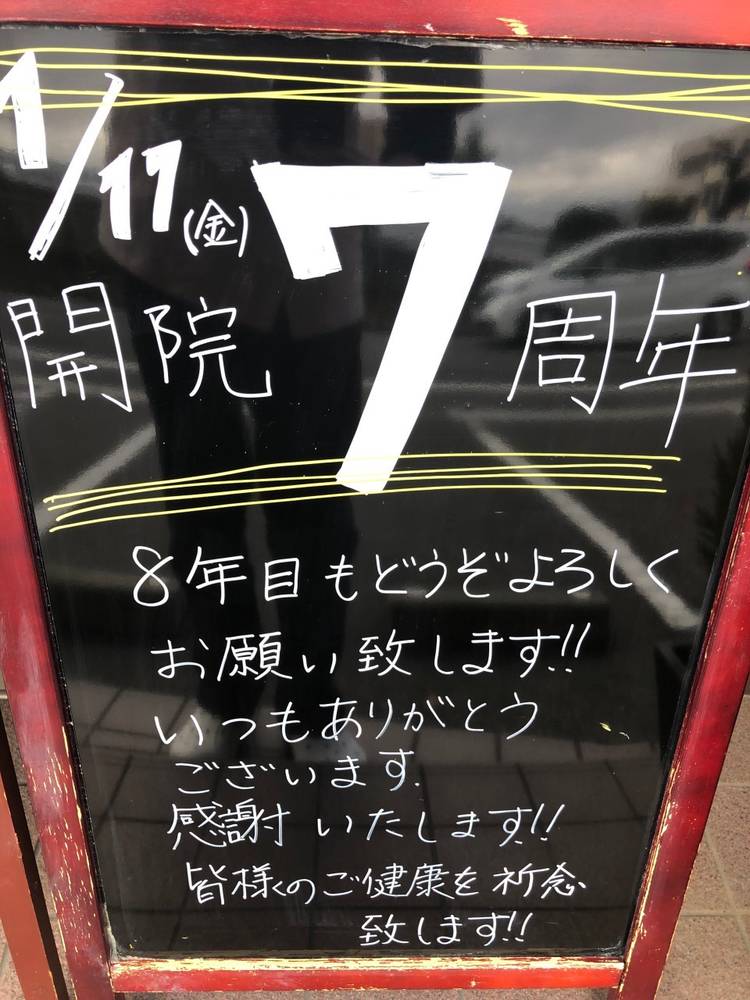 1/11(金)
開院7周年
8年目もどうぞよろしく
お願い致します!!
いつもありがとう
ございます.
感謝いたします!!
皆様のご健康を祈念
致します!!